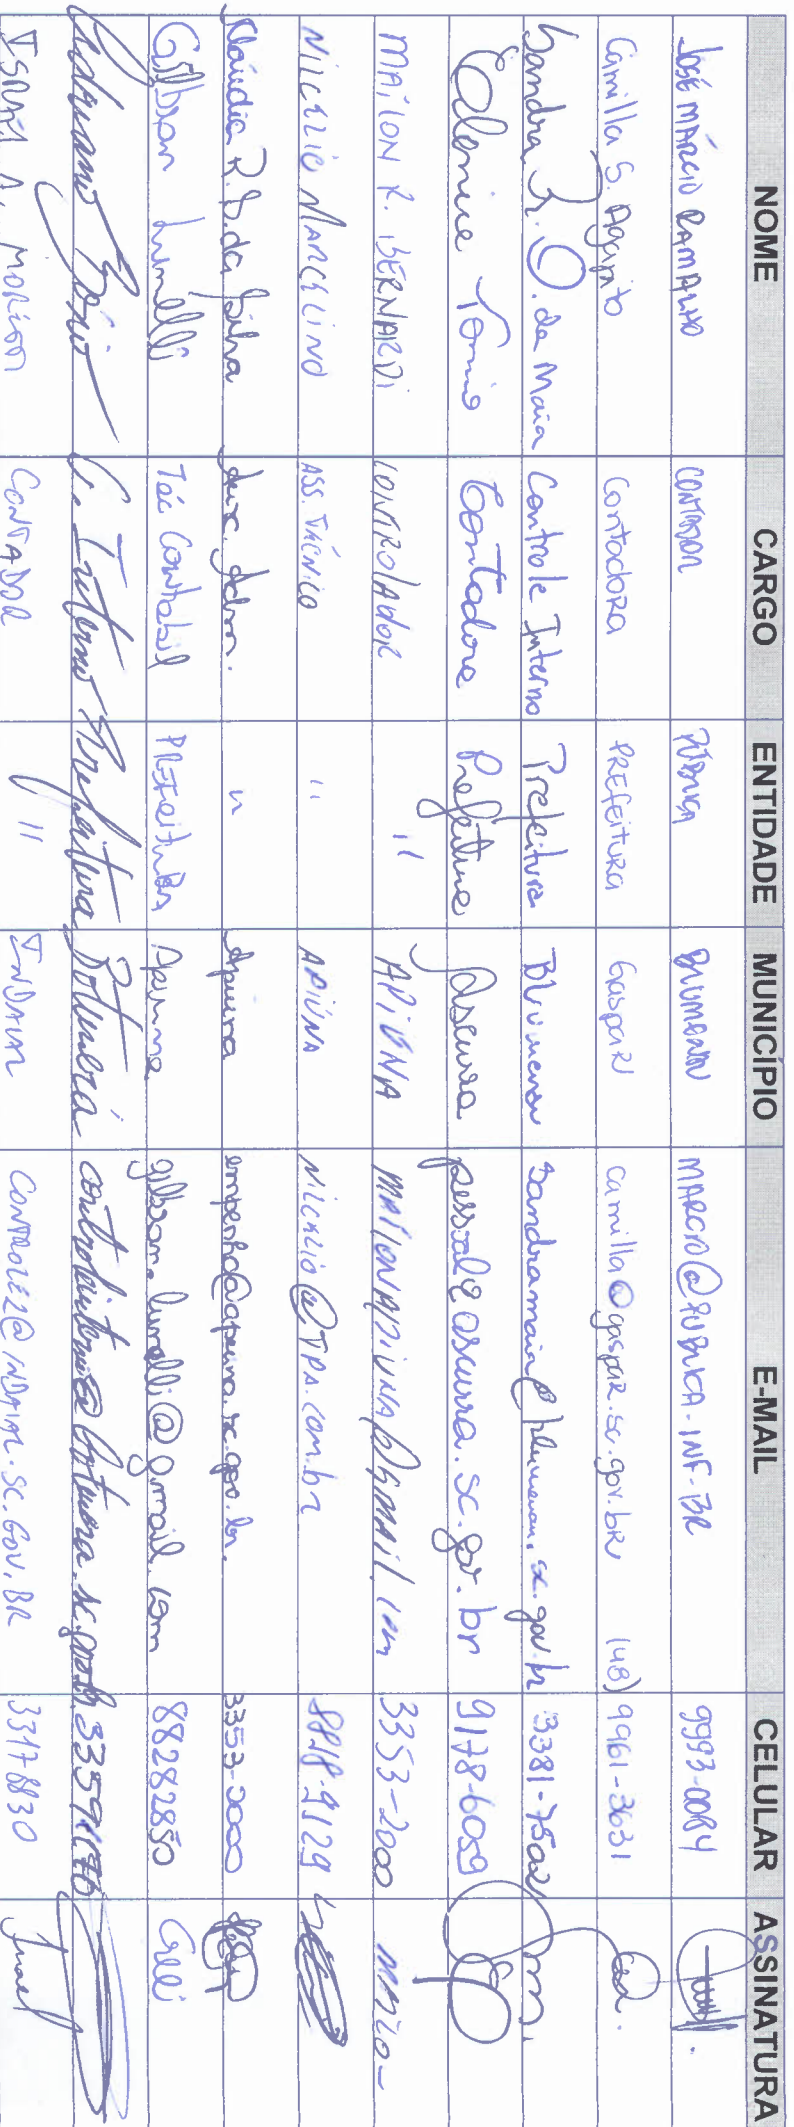 NOME CARGO ENTIDADE MUNICÍPIO E-MAIL CELULAR ASSINATURA
José Márcio Ramalho CONTADOR PÚBLICA BLUMENAU MARCIO@PUBLICA-INF-BR 9993-0084
Camilla S. Agapito Contadora PREFEITURA Gaspar camilla@gaspar.sc.gov.br (48) 9961-3631
Sandra R. O. de Maia Controle Interno Prefeitura Blumenau sandramaia@blumenau.sc.gov.br 3381-7502
Edenice Tomio Contadora Prefeitura Ascurra pessoal@ascurra.sc.gov.br 9178-6059
MAÍLON R. BERNARDI CONTROLADOR " APIÚNA MAILONAPIUNA@GMAIL.COM 3353-2000
NILCÉLIO MARCELINO ASS. TÉCNICO " APIÚNA NILCELIO@TPA.com.br 8818-9129
Claudia R. S. da Silva Aux. Adm. " Apiuna empenho@apiuna.sc.gov.br. 3353-2000
Gibson Lunelli Téc Contabil PREFEITURA Apiuna gibson.lunelli@gmail.com 88282850
C. Interno Prefeitura Botuverá controleinterno@botuvera.sc.gov.br 33591170
ISRAEL A. MORISON CONTADOR " INDAIAL CONTROLE2@INDAIAL.SC.GOV.BR 33178830 Israel